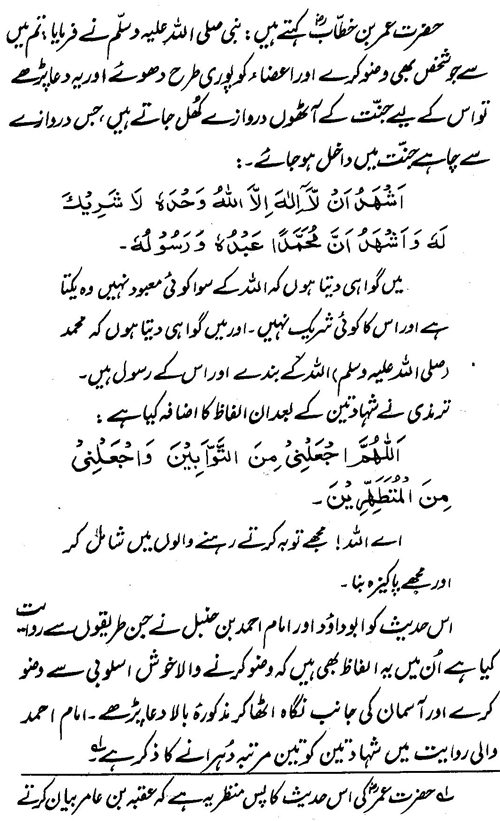 حضرت عمر بن خطابؓ کہتے ہیں: نبی صلی اللہ علیہ وسلّم نے فرمایا: تم میں
سے جو شخص بھی وضو کرے اور اعضاء کو پوری طرح دھوئے اور یہ دعا پڑھے
تو اس کے لیے جنّت کے آٹھوں دروازے کھُل جاتے ہیں، جس دروازے
سے چاہے جنّت میں داخل ہو جائے۔:
اَشْهَدُ اَنْ لَّآ اِلٰهَ اِلَّا اللّٰهُ وَحْدَهٗ لَا شَرِيْكَ
لَهٗ وَاَشْهَدُ اَنَّ مُحَمَّدًا عَبْدُهٗ وَرَسُوْلُهٗ۔
میں گواہی دیتا ہوں کہ اللہ کے سوا کوئی معبود نہیں وہ یکتا
ہے اور اس کا کوئی شریک نہیں۔ اور میں گواہی دیتا ہوں کہ محمد
(صلی اللہ علیہ وسلم) اللہ کے بندے اور اس کے رسول ہیں۔
ترمذی نے شہادتین کے بعد ان الفاظ کا اضافہ کیا ہے:
اَللّٰهُمَّ اجْعَلْنِيْ مِنَ التَّوَّابِيْنَ وَاجْعَلْنِيْ
مِنَ الْمُتَطَهِّرِيْنَ۔
اے اللہ! مجھے توبہ کرتے رہنے والوں میں شامل کر
اور مجھے پاکیزہ بنا۔
اس حدیث کو ابوداؤد اور امام احمد بن حنبل نے جن طریقوں سے روایت
کیا ہے اُن میں یہ الفاظ بھی ہیں کہ وضو کرنے والا خوش اسلوبی سے وضو
کرے اور آسمان کی جانب نگاہ اٹھا کر مذکورۂ بالا دعا پڑھے۔ امام احمد
والی روایت میں شہادتین کو تین مرتبہ دُہرانے کا ذکر ہے۔؎۱
؎۱ حضرت عمرؓ کی اس حدیث کا پس منظر یہ ہے کہ عقبہ بن عامر بیان کرتے